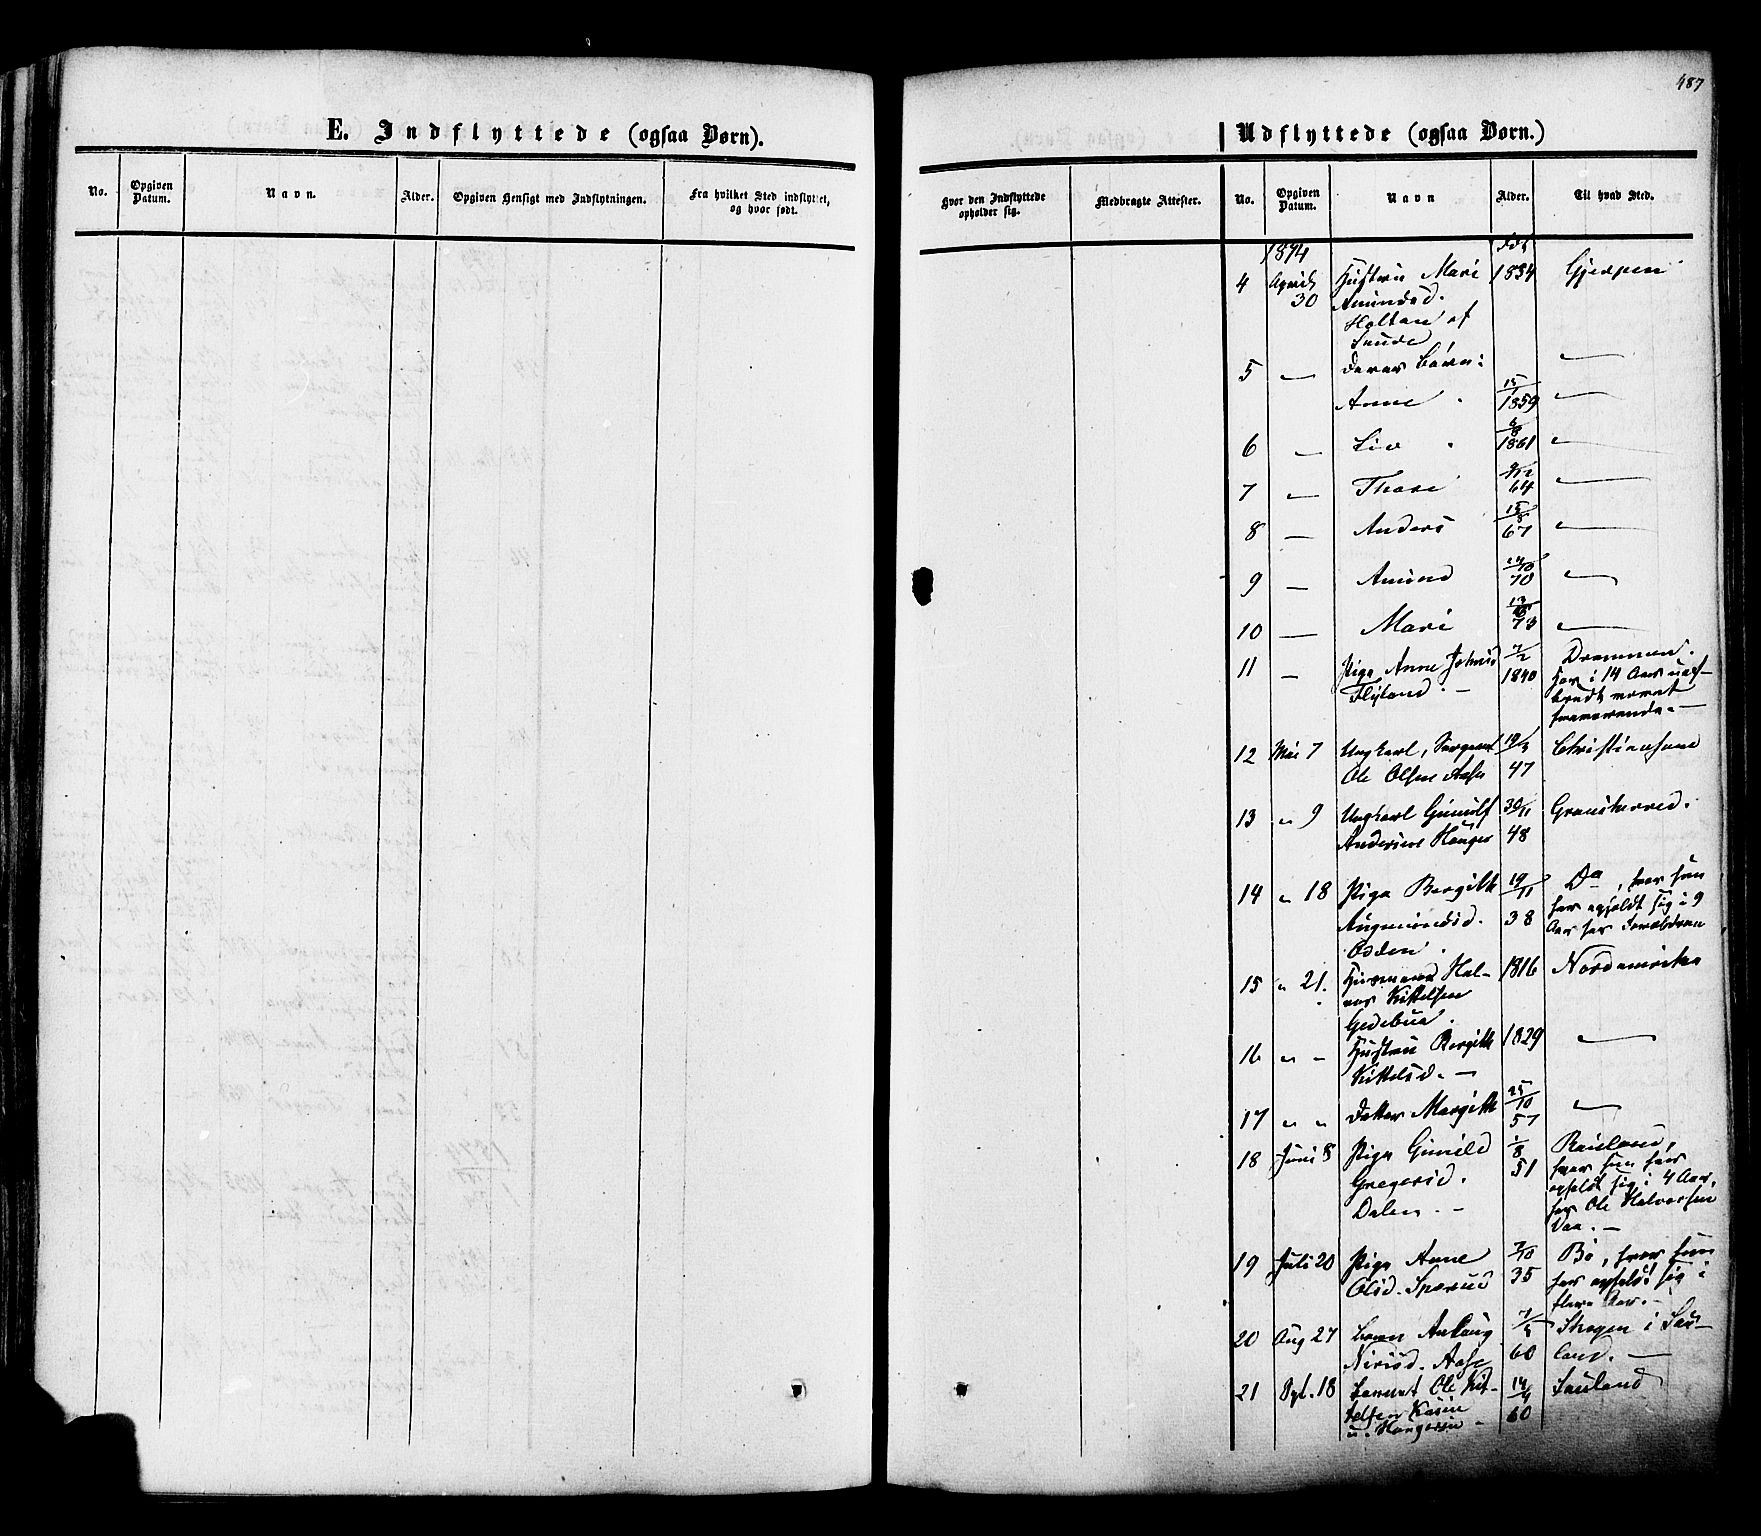 487
E. Indflyttede (ogsaa Børn).
No.
Opgiven Datum.
Navn.
Alder.
Opgiven Hensigt med Indflytningen.
Fra hvilket Sted indflyttet, og hvor født.
Hvor den Indflyttede opholder sig.
Medbragte Attester.
Udflyttede (ogsaa Børn.)
No.
Opgiven Datum.
Navn
Alder.
Til hvad Sted.
1874
4 April 30 Hustru Mari 1834 Gjerpen
Amundsd.
Holtan af
Saude
5 — deres Børn: —
Anne 1859 —
6 — Liv 1861 —
7 — Thore 64 —
8 — Anders 67 —
9 — Amund 70 —
10 — Mari 73 —
11 — Pige Anne Johnsd 7/2 1840 Drammen.
Flisland. — har i 14 Aar uaf-
brudt været
fraværende. —
12 Mai 7 Ungkarl, Sergeant 19/3 Christiansand
Ole Olsen Aase 47
13 " 9 Ungkarl Gunulf 30/11 Granskerred.
Andersen Hauges 48
14 " 18 Pige Bergith 19/11 Do, hvor hun
Augmundsd. 38 har opholdt sig i 9
Aar hos Forældrene
15 " 21. Huusmand Hal- 1816 Nordamerika
vor Kittelsen
Gedebua.
16 " " Hustru Bergith 1829 —
Kittelsd. —
17 " " Datter Margith 25/10 57 —
18 Juni 8 Pige Gunild 1/8 51 Rauland,
Gregersd. hvor hun har
Dalen. — opholdt sig i 4 Aar,
hos Ole Halvorsen
Daa. —
19 Juli 20 Pige Anne 7/10 Bø, hvor hun
Olsd. 35 har opholdt sig i
flere Aar. —
20 Aug 27 Barn Anlaug 60 Skogen i Sau-
Nirisd. Aase land. —
21 Spt. 18 Ole Kit- 14/4 Sauland
telsen 60